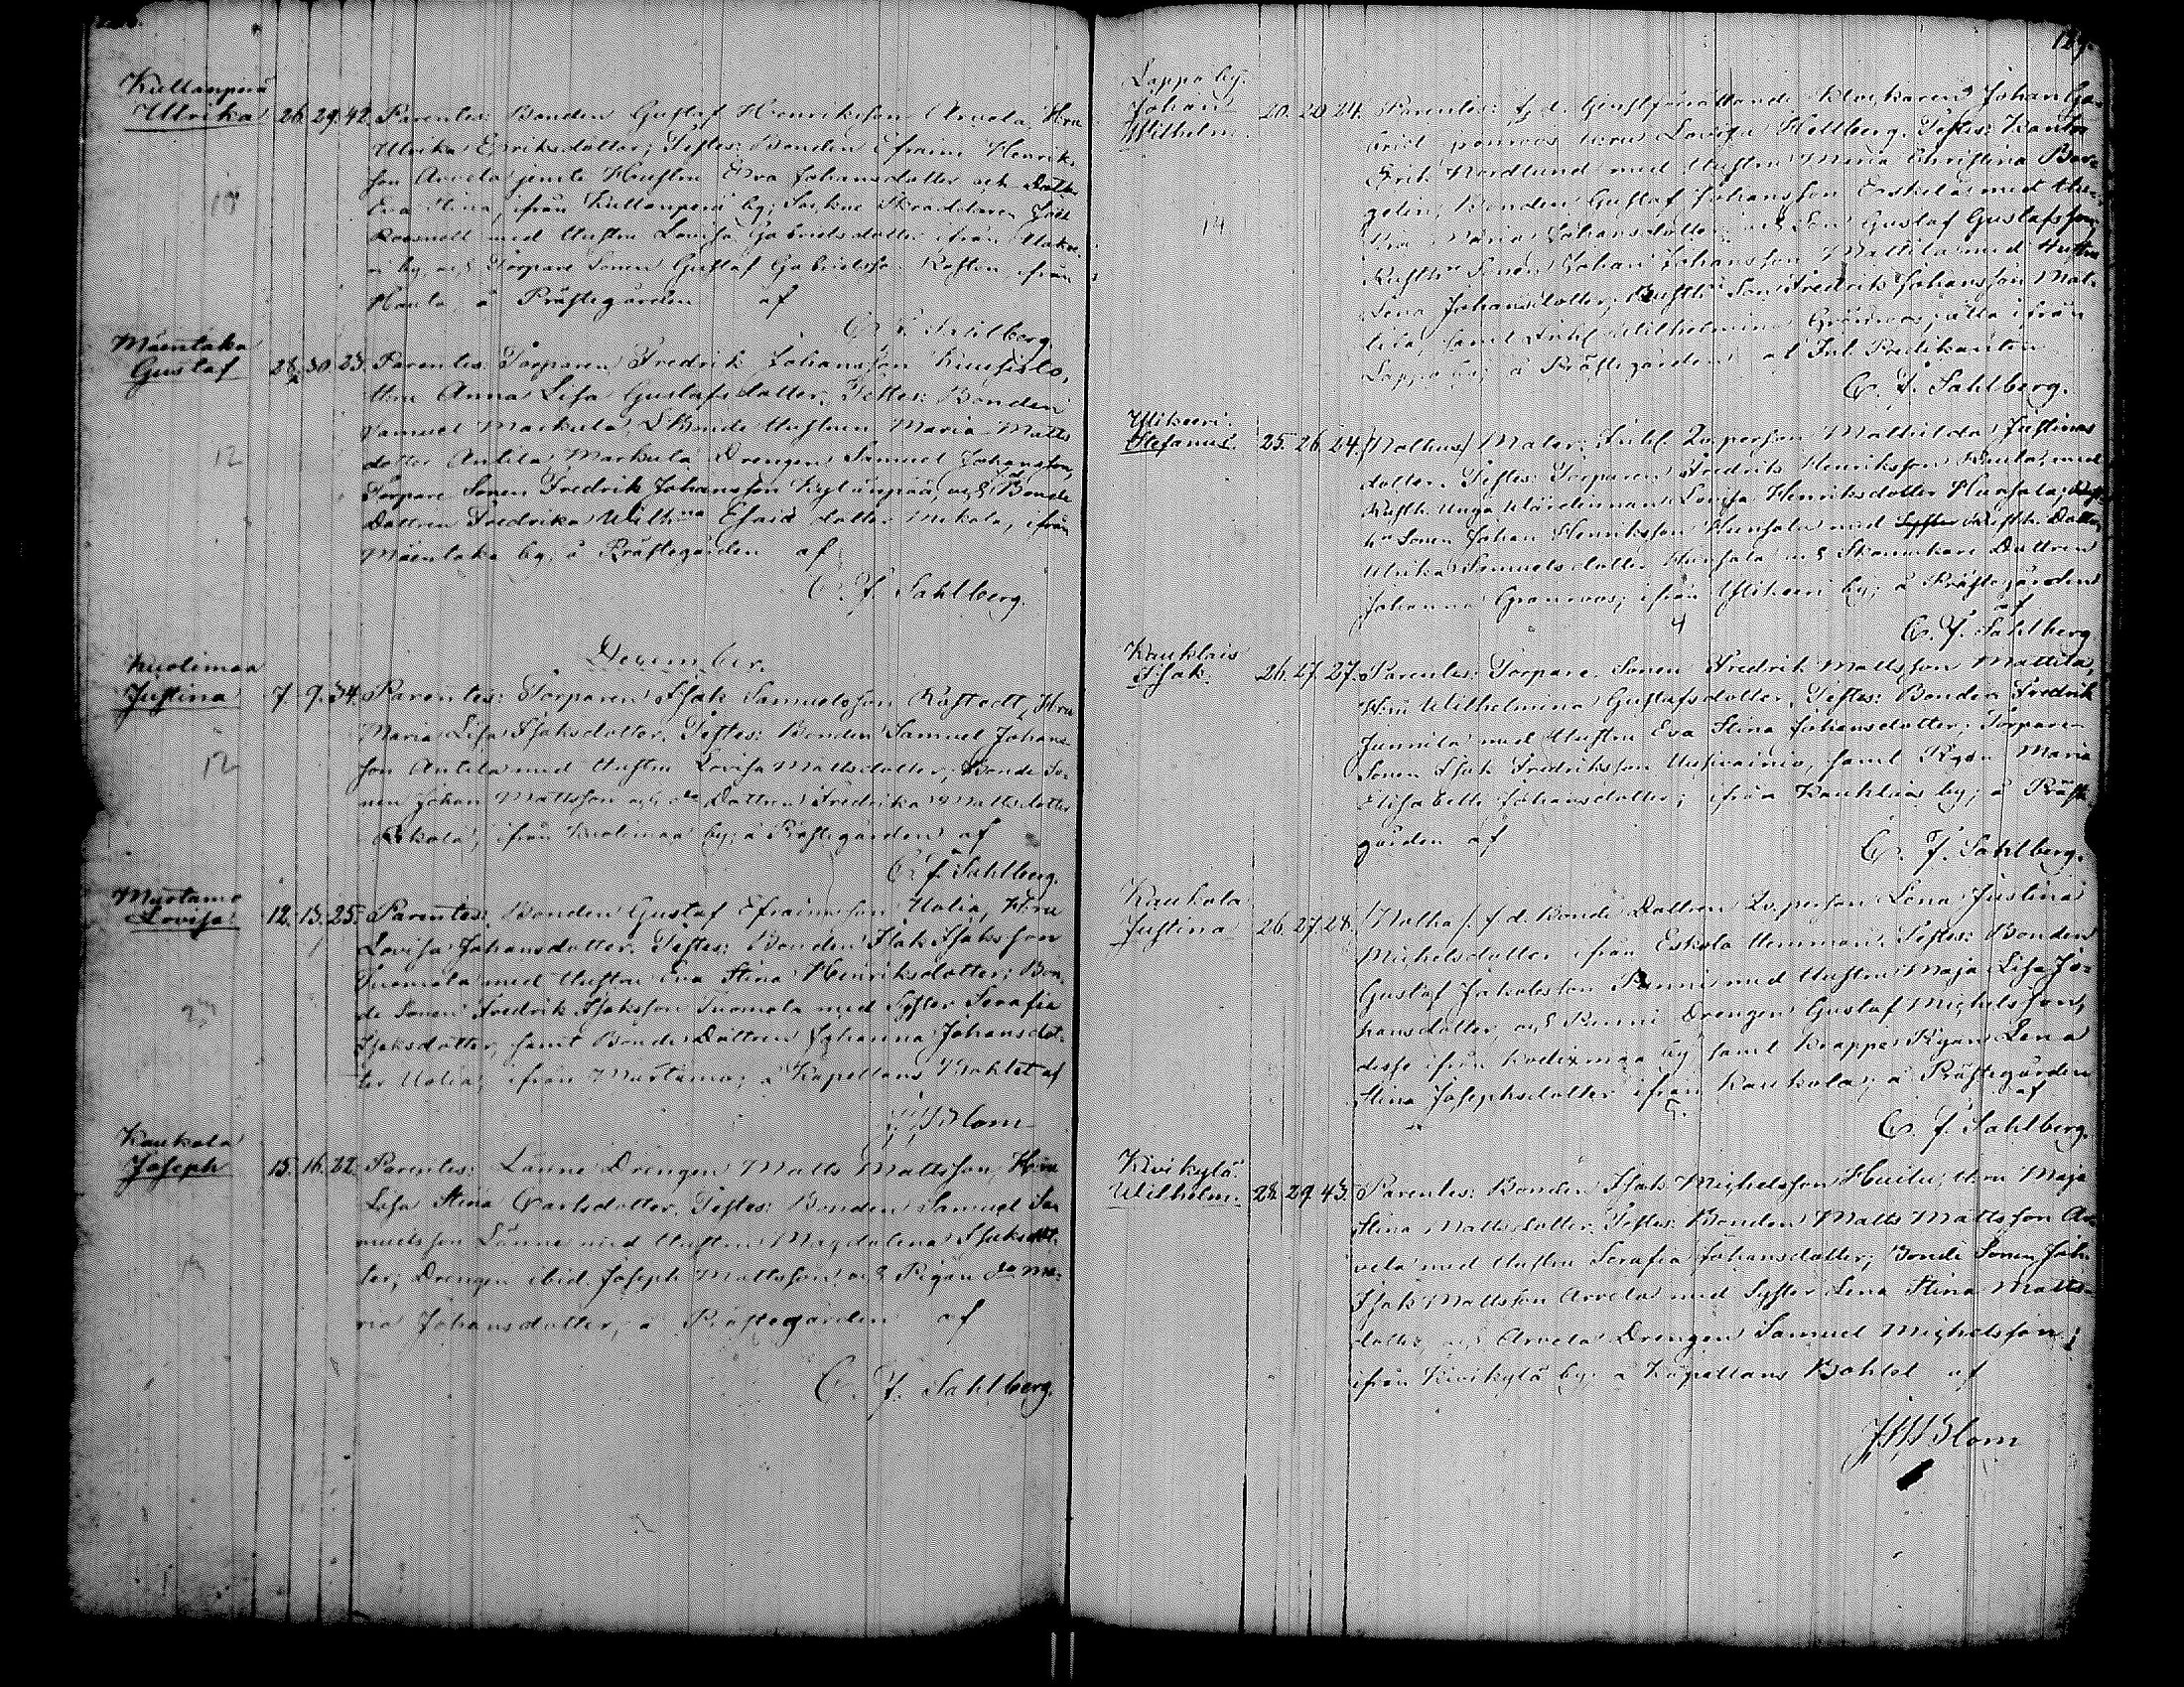 Kullanperä
Ulrika 26. 29. 42. Parentes: Bonden Gustaf Henriksson Arvela, H:ru
Ulrika Eriksdotter; Testes: Bonden Efraim Henrik-
son Arvela jemte Hustru Eva Johansdotter och Dotter
Eva Stina, ifrån Kullanperä by; Skräddaren
med Hustru Lovisa Gabrielsdotter ifrån
by, och Torpare Sonen Gustaf Gabrielsson ifrån
å Prästegården af
C. F. Sahlberg.
Mäentaka
Gustaf 28. 30. 23. Parentes: Torparen Fredrik Johansson
H:ru Anna Lisa Gustafsdotter. Testes: Bonden
Samuel Markula, Bonde Hustrun Maria Matts
dotter Antila, Markula Drengen Samuel Johansson,
Torpare Sonen Fredrik Johansson och Bonde
Dottren Fredrika Wilh:na Esaiædotter Mikola, ifrån
Mäentaka by, å Prästegården af
C. F. Sahlberg.
December.
Kuolimaa
Justina 7. 9. 34. Parentes: Torparen Isak Samuelsson Råstedt, H:ru
Maria Lisa Isaksdotter. Testes: Bonden Samuel Johans-
son Antila med Hustru Lovisa Mattsdotter, Bonde So-
nen Johan Mattsson och d:o Dottren Fredrika Mattsdotter
Eskola, ifrån Kuolimaa by; å Prästegården af
C. F. Sahlberg.
Murtamo
Lovisa 12. 13. 25. Parentes: Bonden Gustaf Efraimsson Uolia, H:ru
Lovisa Johansdotter. Testes: Bonden Isak Isaksson
Tuomola med Hustru Eva Stina Henriksdotter; Bon-
de Sonen Fredrik Isaksson Tuomola med Syster Serafia
Isaksdotter, samt Bonde Dottren Johanna Johansdot-
ter Uolia; ifrån Murtamo; å Kapellans Bohlet af
J. W. Blom
Kaukola
Joseph 15. 16. 22. Parentes: Länne Drengen Matts Mattsson, H:ru
Lisa Stina Carlsdotter. Testes: Bonden Samuel Sa-
muelsson Länne med Hustru Magdalena Isaksdot-
ter, Drengen ibid. Joseph Mattsson och Pigan d:o Ma-
ria Johansdotter; å Prästegården af
C. F. Sahlberg.
129.
Lappo by.
Johan
Wilhelm. 20. 20. 24. Parentes: t.j.d. Gustförrättande Klockaren Johan Ga-
briel H:ru Lovisa Hellberg. Testes: Kantor
Erik Nordlund med Hustru Maria Christina
Bonden Gustaf Johansson Erkkilä med Hu-
stru Maria Johansdotter och Son Gustaf Gustafsson,
Rusth:s Sonen Johan Johansson Mattila med Hustru
Lena Johansdotter, Rusth:s Son Fredrik Johansson Mat-
tila, samt Wilhelmina alla ifrån
Lappo by; å Prästegården af Predikanten
C. F. Sahlberg.
Ylikeeri.
Stefanus. 25. 26. 24. (Nothus) Mater: Inh. Qv. person Mathilda Justinas
dotter. Testes: Torparen Fredrik Henriksson med
Rusth. Unga Wärdinnan Lovisa Henriksdotter
Sonen Johan Henriksson med Syster Rusth. Dotter
Ulrika Samuelsdotter och Skomakare Dottren
Johanna Granroos; ifrån Ylikeeri by; å Prästegården
af
C. F. Sahlberg
Kauklais
Isak. 26. 27. 27. Parentes: Torpare Sonen Fredrik Mattsson Mattila,
H:ru Wilhelmina Gustafsdotter. Testes: Bonden Fredrik
Junnila med Hustru Eva Stina Johansdotter; Torpare
Sonen Isak Fredriksson samt Pigan Maria
Elisabeth Johansdotter; ifrån Kauklais by; å Präste
gården af
C. F. Sahlberg.
Kaukola
Justina 26. 27. 28. (Notha). f.d. Bonde Dottren Qv. person Lena Justina
Michelsdotter ifrån Eskola Hemman. Testes: Bonden
Gustaf Jakobsson Punni med Hustru Maja Lisa Jo-
hansdotter, och Punni Drengen Gustaf Michelsson,
desse ifrån by samt Knappe Pigan Lena
Stina Josephsdotter ifrån Kaukola; å Prästegården
af
C. F. Sahlberg.
Kivikylä
Wilhelm. 28. 29. 43. Parentes: Bonden Isak Michelsson Huilu, H:ru Maja
Stina Mattsdotter. Testes: Bonden Matts Mattsson Ar-
vela med Hustru Serafia Johansdotter; Bonde Sonen Joh.
Isak Mattsson Arvela med Syster Lena Stina Matts-
dotter, och Arvela Drengen Samuel Michelsson;
ifrån Kivikylä by; å Kapellans Bohlet af
J. W. Blom